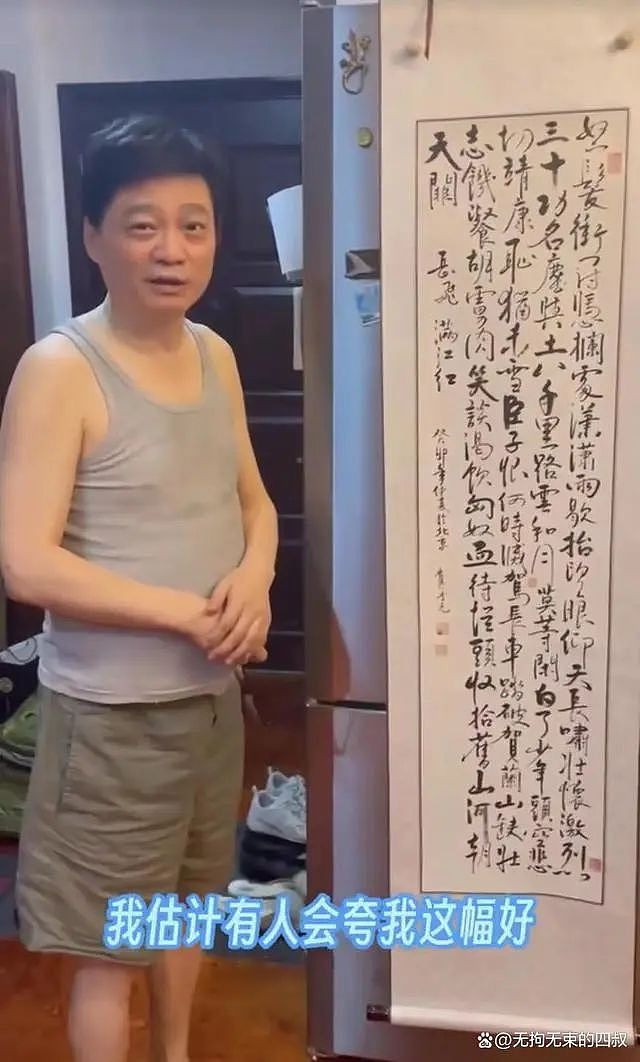 怒髮衝冠憑欄處瀟瀟雨歇抬望眼仰天長嘯壯懷激烈
三十功名塵與土八千里路雲和月莫等閑白了少年頭空悲
切靖康恥猶未雪臣子恨何時滅駕長車踏破賀蘭山缺壯
志饑餐胡虜肉笑談渴飲匈奴血待從頭收拾舊山河朝
天闕 岳飛 滿江紅 癸卯年仲夏於北京
我估计有人会夸我这幅好
无拘无束的四叔